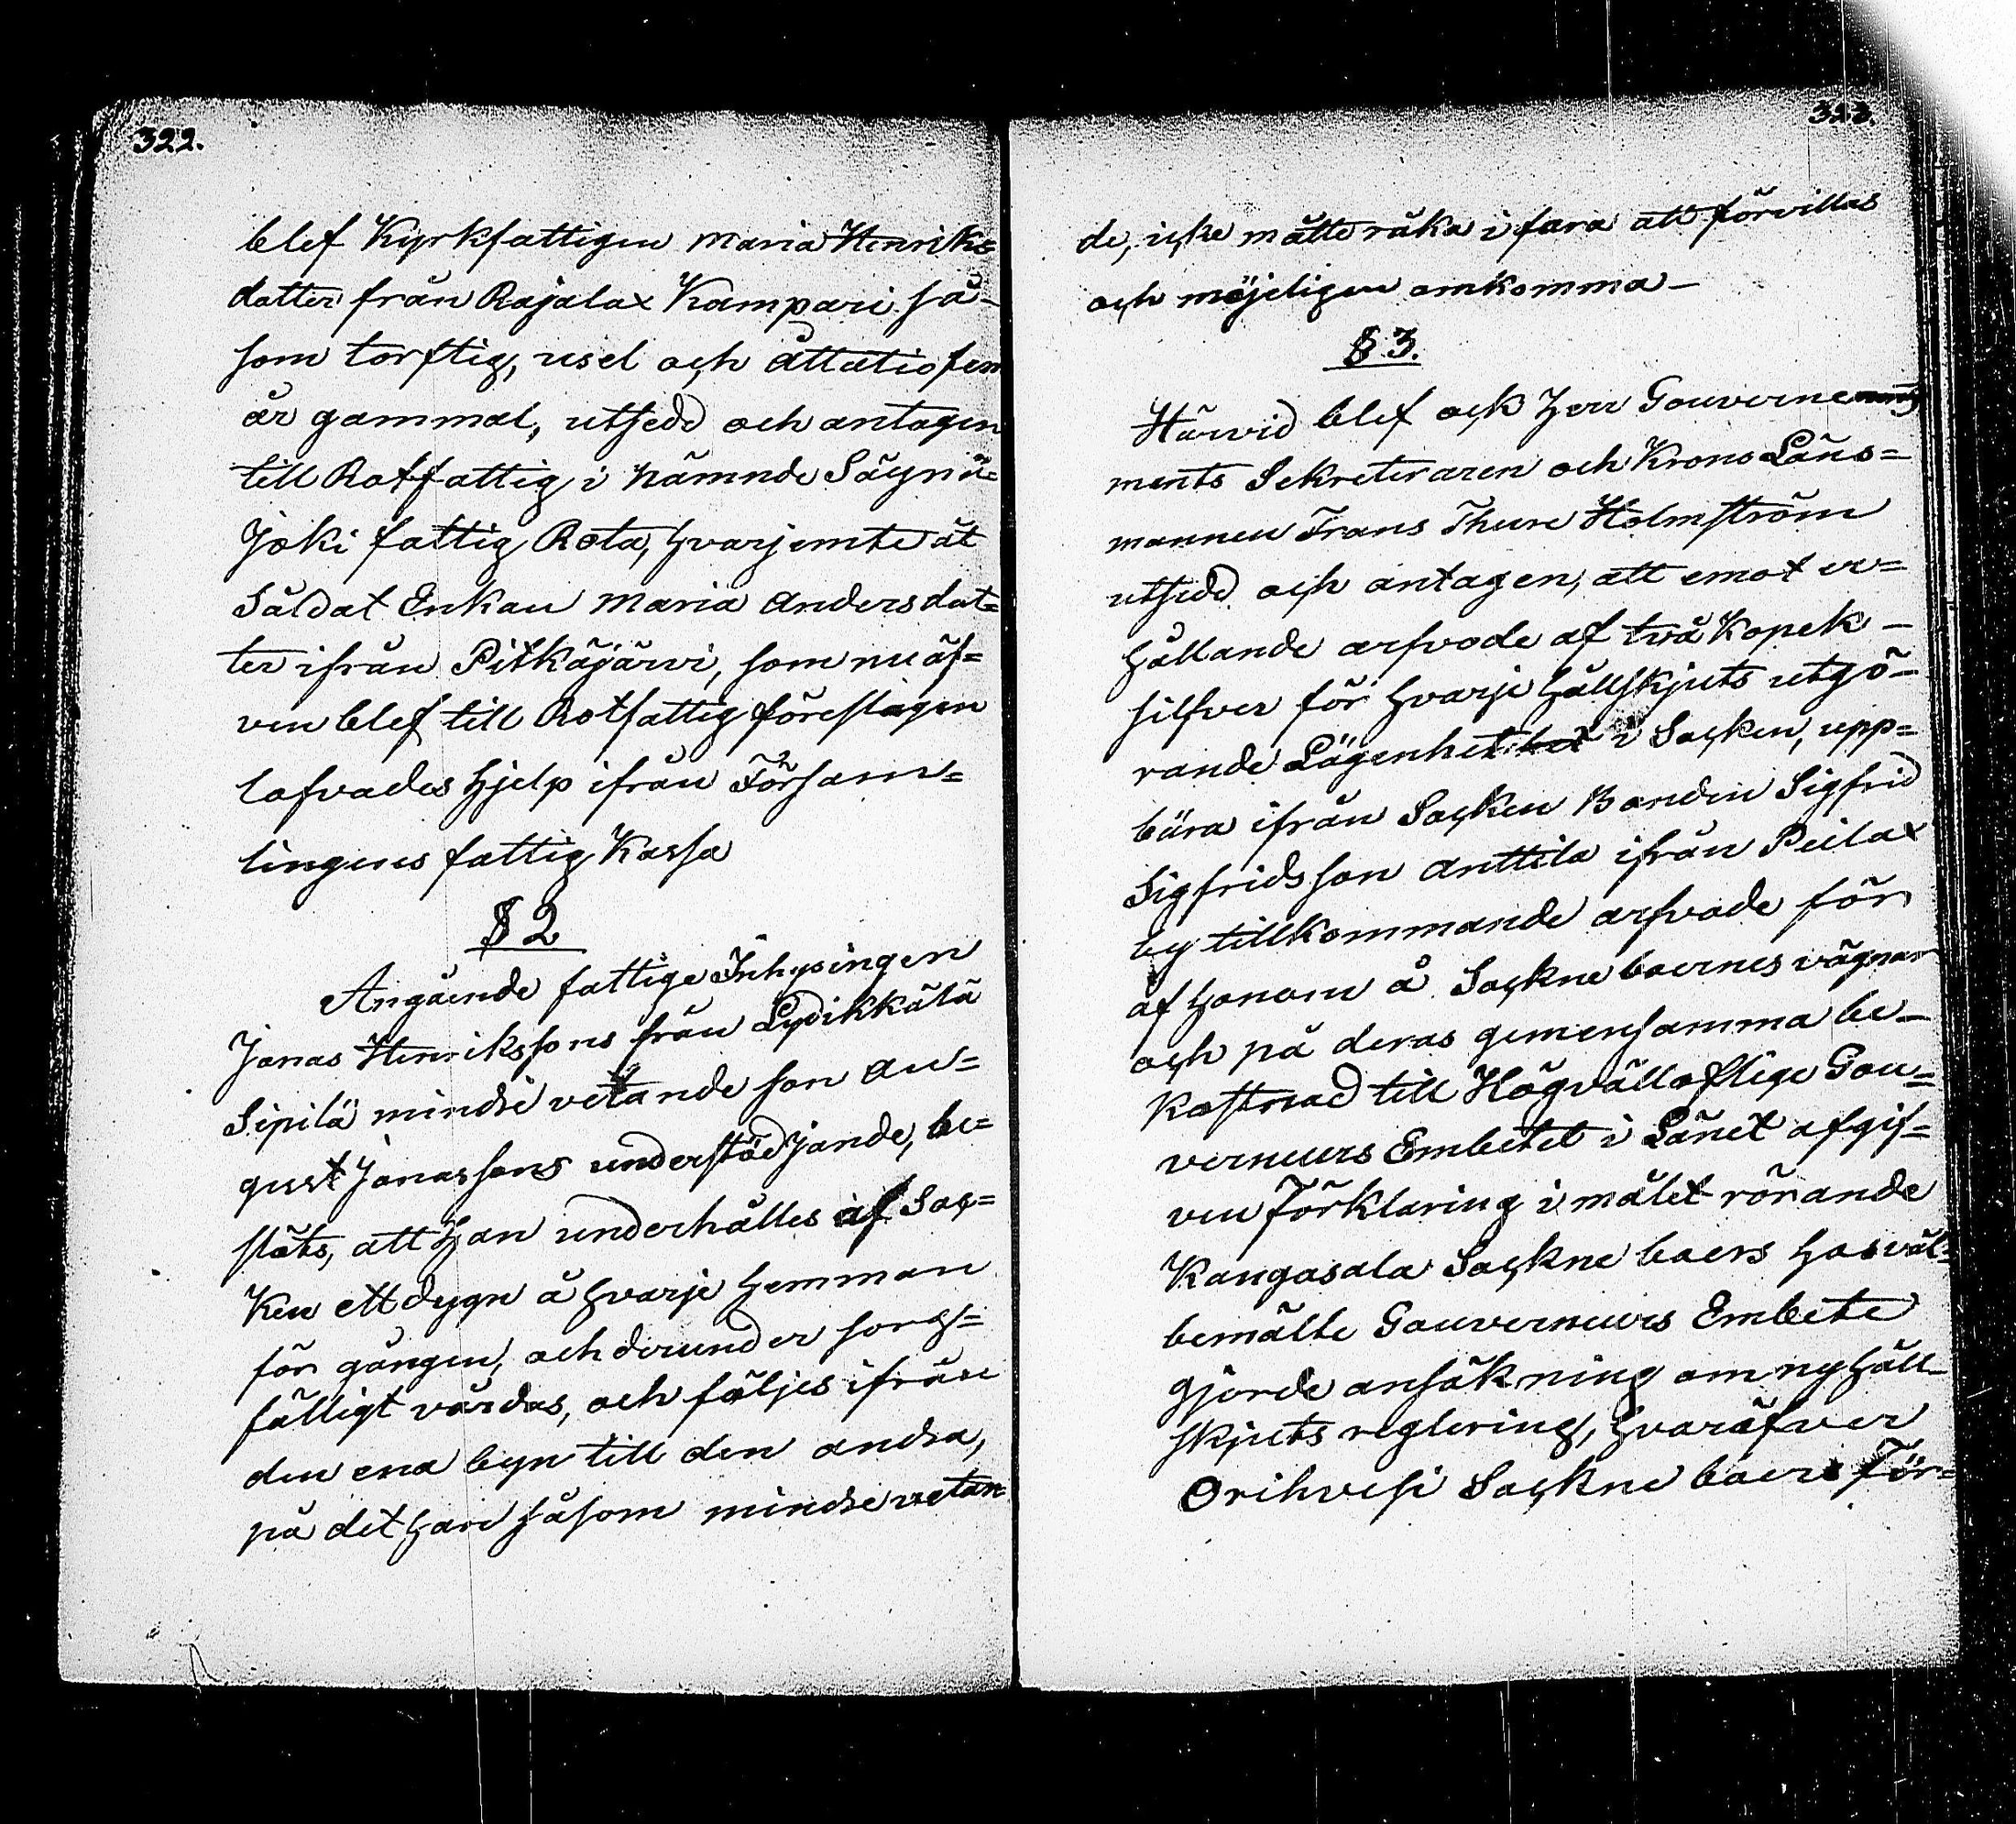 322.
blef Kyrkfattigen Maria Henriks=
datter från Rajalax Kampari så-
som torftig, usel och åttatiofem
år gammal, utsedd och antagen
till Rotfattig i nämnde Säynä=
Joki fattig Rota, hvarjemte åt
Såldat Enkan Maria Andersdat=
ter ifrån Pitkäjärvi, som nu äf=
ven blef till Rotfattig föreslagen
lofvades hjelp ifrån Församl=
lingenes fattig Kassa
§ 2
Angående fattige Inhysingen
Jonas Henrikssons från Lydikkälä
Sipilä mindre vetande son Au=
gust Jonassons understödjande, be=
slöts, att han underhålles af Soc=
ken ett dygn å hvarje hemman
för gången, och derunder sorg=
fälligt vårdas, och följes ifrån
den ena byn till den andra,
på det han såsom mindre vetan=
323.
de, icke måtte råka i fara att förvillas
och möjeligen omkomma-
§ 3.
Härvid blef ock Herr Gouverne
ments Sekreteraren och Krono Läns=
mannen Frans Thure Holmström
utsedd och antagen, att emot er=
hållande arfvode af två Kopek-
silfver för hvarje hållskjuts utgö-
rande Lägenhet i Socken, upp=
bära ifrån Socken Bonden Sigfrid
Sigfridsson Anttila ifrån Peilax
by tillkommande arfvode för
af honom å Sockneboernes vägnar
och på deras gemensamma be-
kostnad till Högvällofliga Gou=
verneurs Embetet i Länet afgif=
ven Förklaring i målet rörande
Kangasala Sockne boers hos väl=
bemälte Gouverneurs Embete
gjorde ansökning om ny håll-
skjuts reglering, hvaröfver
Orihvesi Sockne boers För=